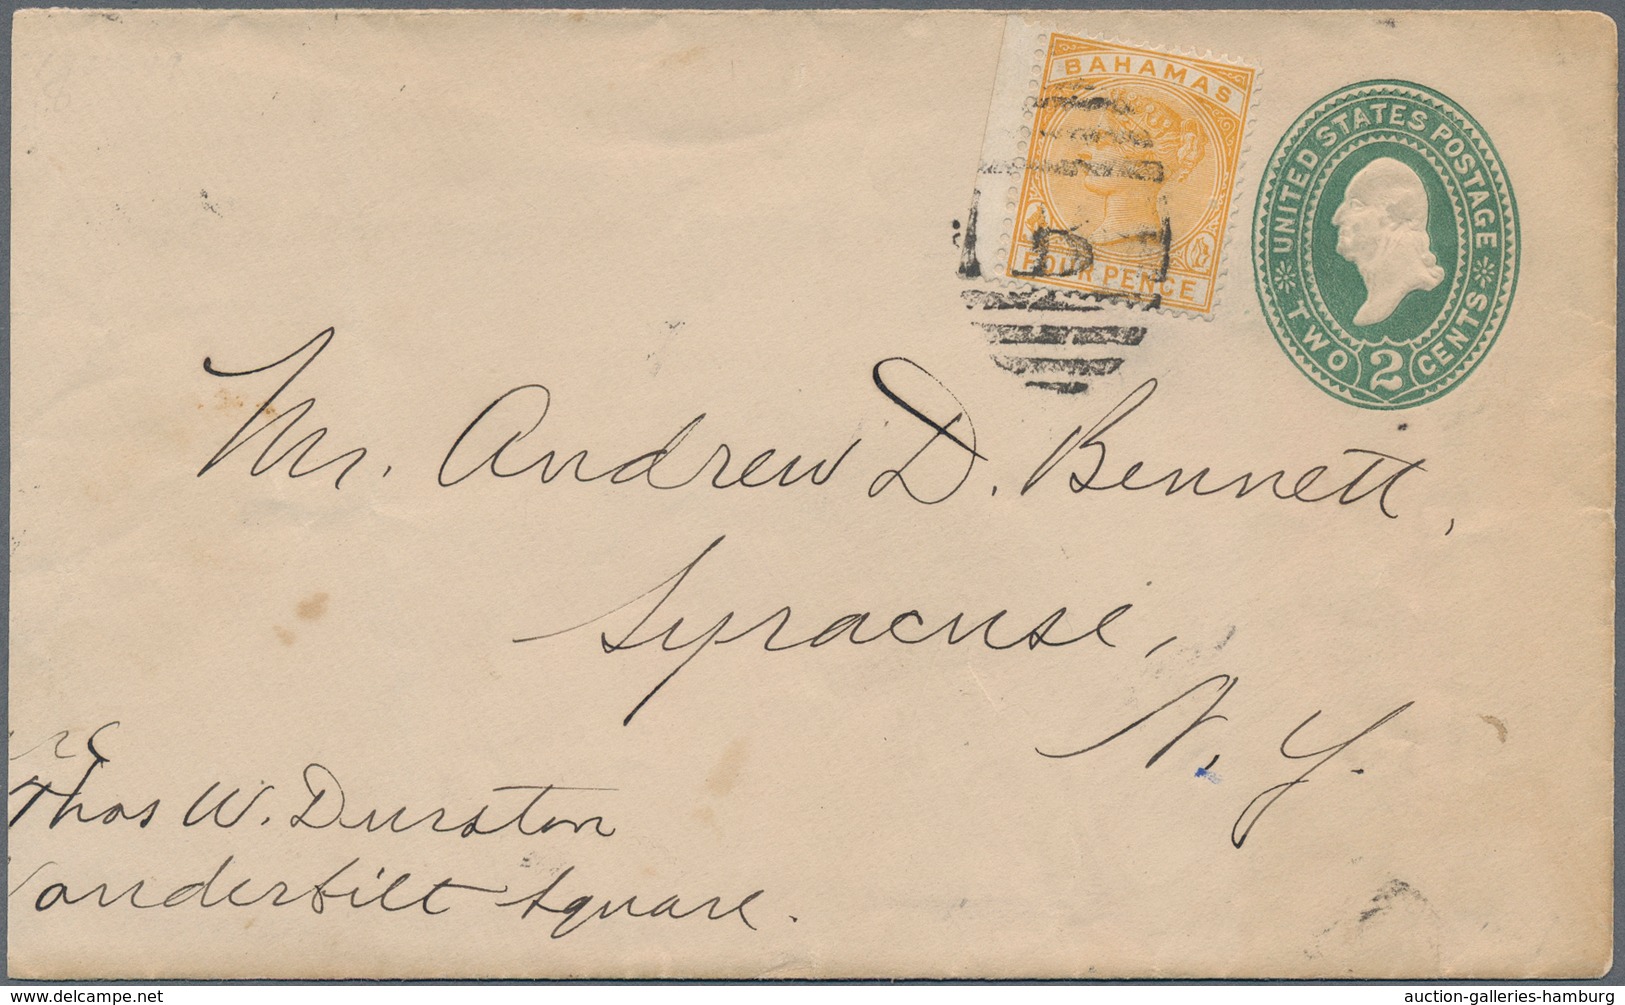 BAHAMAS
FOUR PENCE
B
UNITED STATES POSTAGE
TWO 2 CENTS
Mr. Andrew D. Bennett,
Syracuse,
N. Y.
Thos W. Durston
Vanderbilt Square.
auction-galleries-hamburg